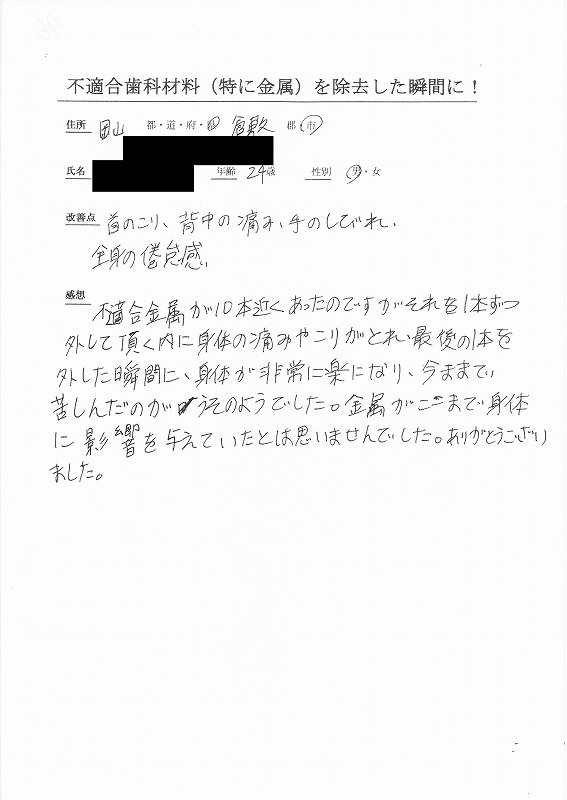 不適合歯科材料（特に金属）を除去した瞬間に！
住所 岡山 都・道・府・県 倉敷 郡・市
氏名 年齢 24歳 性別 男・女
改善点 首のこり、背中の痛み、手のしびれ、
全身の倦怠感、
感想 不適合金属が10本近くあったのですがそれを1本ずつ
外して頂く内に身体の痛みやこりがとれ、最後の1本を
外した瞬間に、身体が非常に楽になり、今まで
苦しんだのがうそのようでした。金属がここまで身体
に影響を与えていたとは思いませんでした。ありがとうござい
ました。